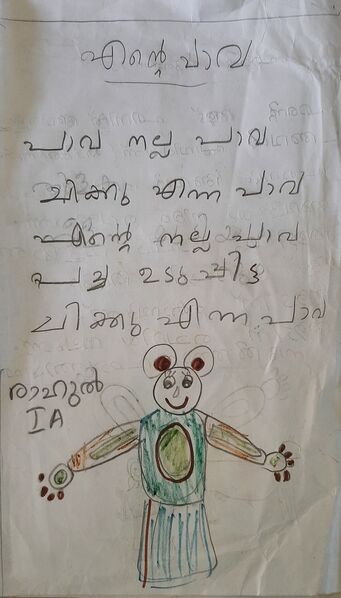 എന്റെ പാവ
പാവ നല്ല പാവ
ചിക്കു എന്ന പാവ
എന്റെ നല്ല പാവ
പച്ച ഉടുപ്പിട്ട
ചിക്കു എന്ന പാവ
രാഹുൽ
IA